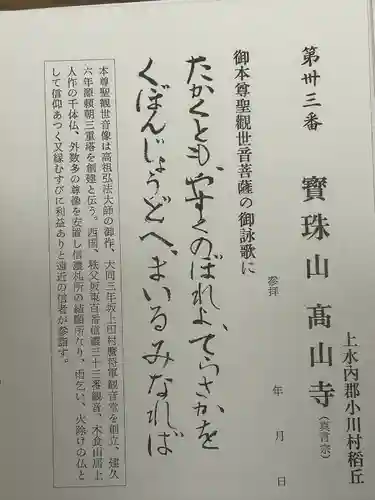 第卅三番　寶珠山　高山寺（真言宗）
上水内郡小川村稲丘
御本尊聖觀世音菩薩の御詠歌に
参拝　年　月　日
たかくとも、やすくのぼれよ、てらさかを
くぼんじょうどへ、まいるみなれば
本尊聖觀世音像は高祖弘法大師の御作、大同三年坂上田村麿将軍観音堂を創立、建久
六年源頼朝三重塔を創建と伝う。西国、秩父坂東百番信濃三十三番観音、木食山居上
人作の千体仏、外数多の尊像を安置し信濃札所の結願所なり、雨乞い、火除けの仏と
して信仰あつく又縁むすびに利益ありと遠近の信者が参詣す。